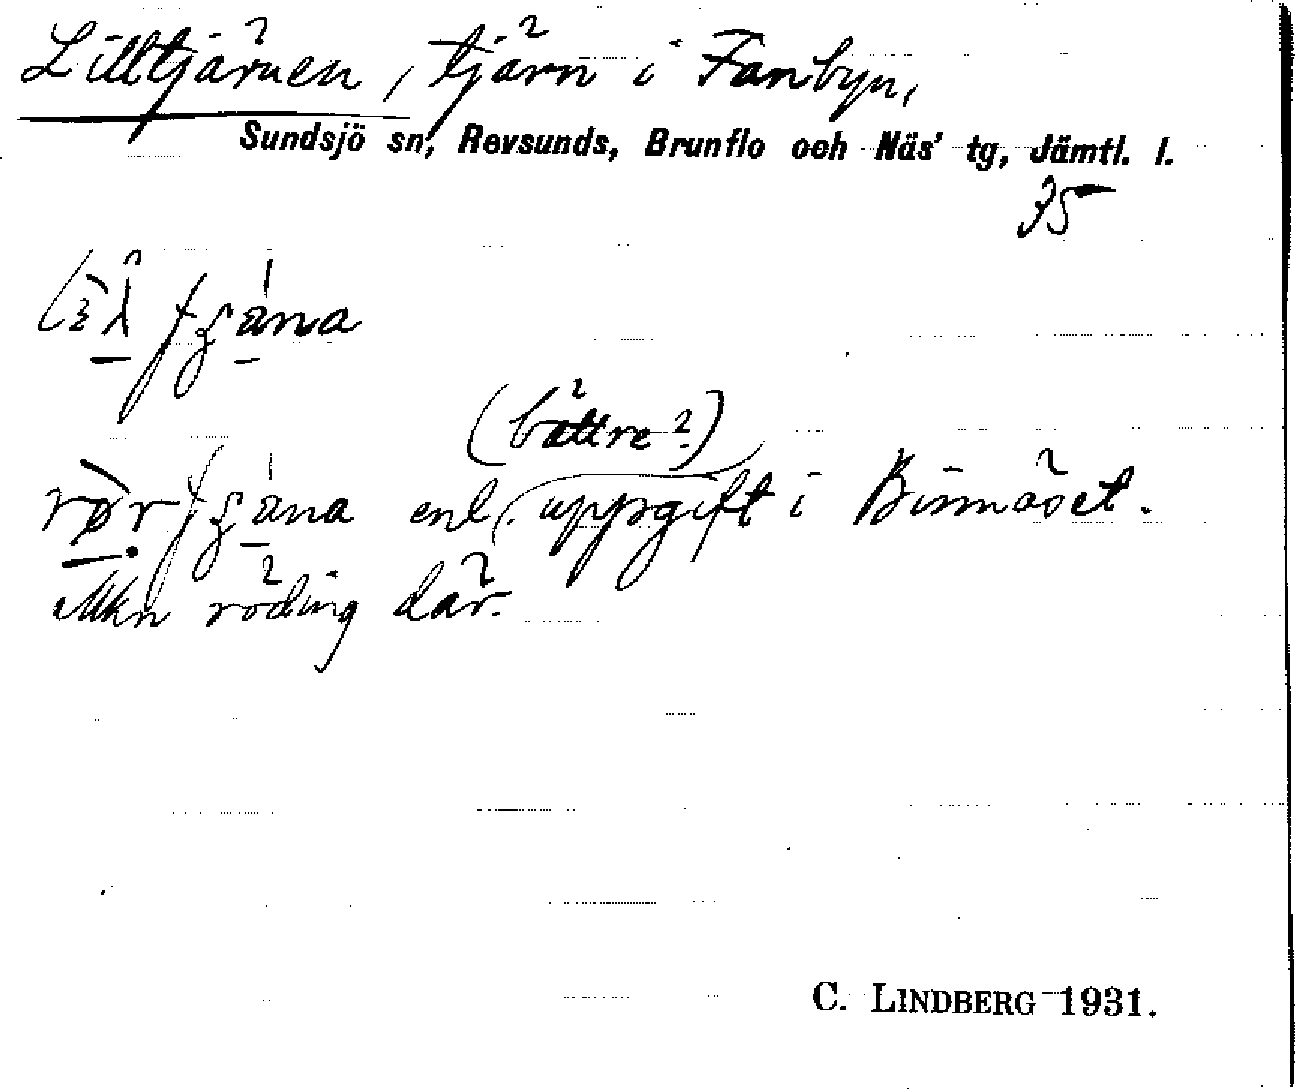 Lilltjärnen, tjärn i Fanbyn,
Sundsjö sn, Revsunds, Brunflo och Näs' tg, Jämtl. l.
75
(bättre?)
enl. uppgift i Binnäset.
röding där.
C. LINDBERG 1931.